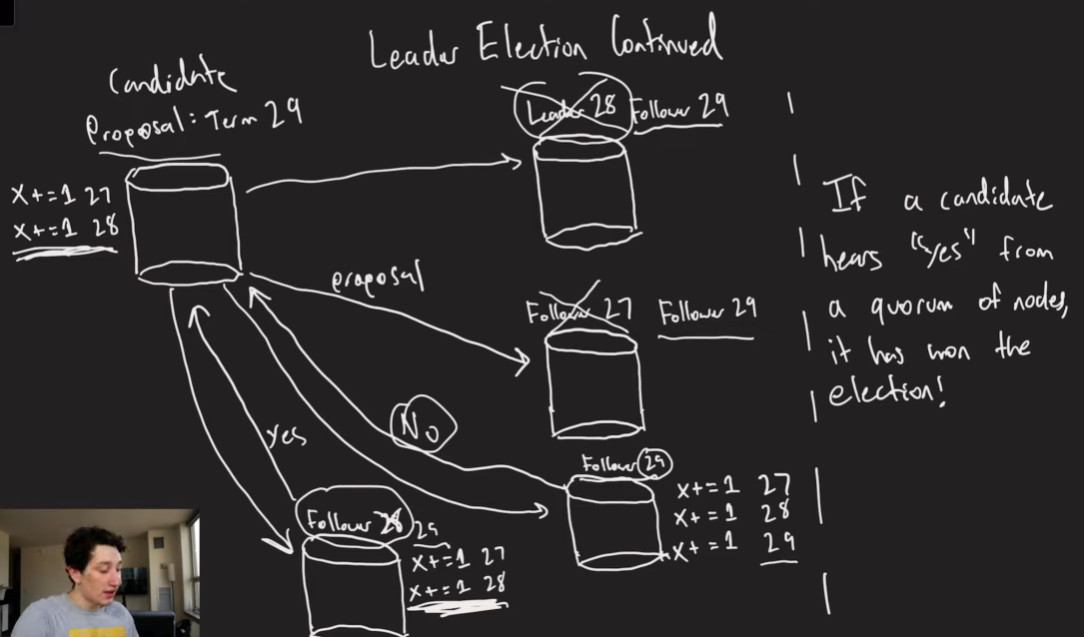 Leader Election Continued
Candidate
Proposal: Term 29
X+=1 27
X+=1 28
Leader 28
Follower 29
proposal
Follower 27
Follower 29
yes
No
Follower 29
X+=1 27
X+=1 28
X+=1 29
Follower 28
29
X+=1 27
X+=1 28
If a candidate
hears "yes" from
a quorum of nodes,
it has won the
election!